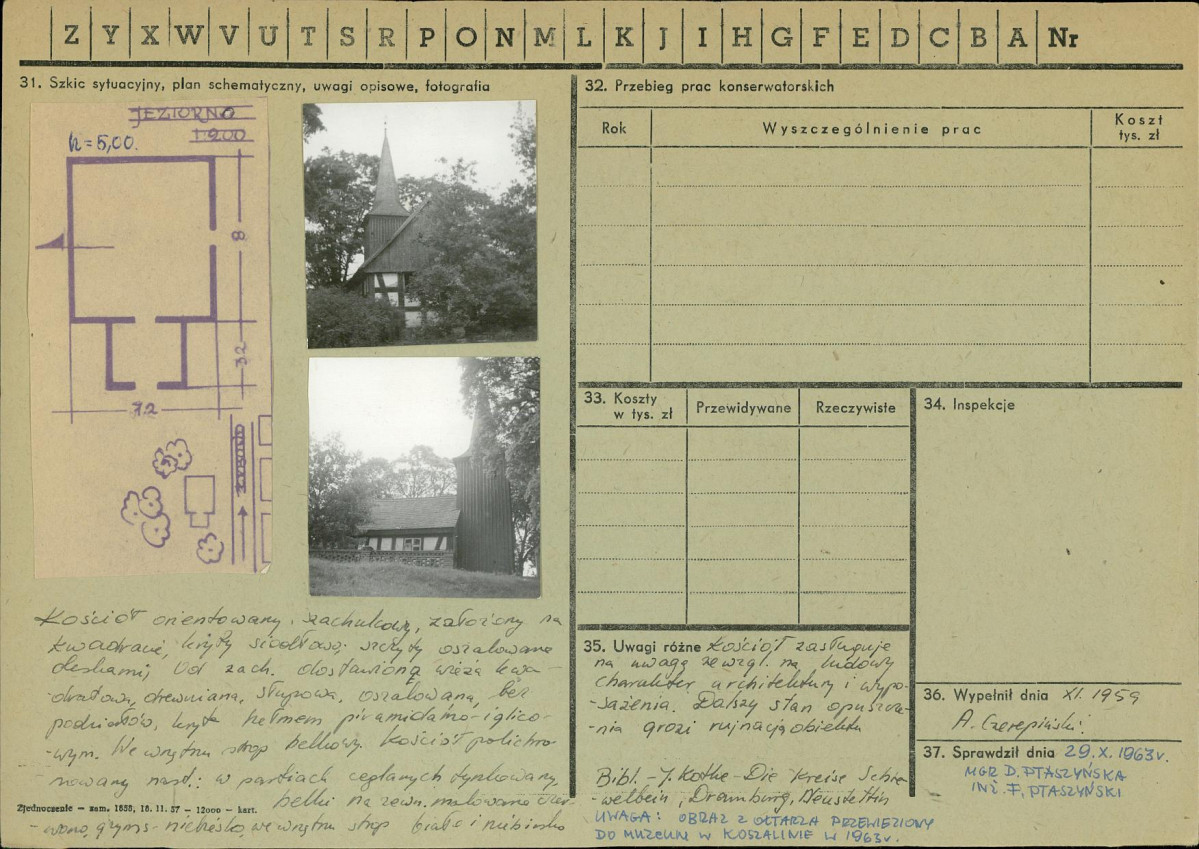 Z Y X W V U T S R P O N M L K J I H G F E D C B A Nr
31. Szkic sytuacyjny, plan schematyczny, uwagi opisowe, fotografia
JEZIORNO
1:200
h = 5,00.
8
3,2
7,2
Kościół orientowany, szachulcowy, założony na
kwadracie, kryty siodłowo, szczyty oszalowane
deskami, Od zach. dostawioną wieża kwa-
dratowa, drewniana, słupowa, oszalowana, bez
podziałów, kryta hełmem piramidalno-iglico-
-wym. We wnętrzu strop belkowy. Kościół polichro-
mowany nast.: w partiach ceglanych tynkowany,
belki na zewn. malowane czer-
-wono, gzyms - niebiesko, we wnętrzu strop biało i niebiesko
Zjednoczenie – zam. 1658, 18. 11. 57 – 12000 – kart.
32. Przebieg prac konserwatorskich
Rok
Wyszczególnienie prac
Koszt
tys. zł
33. Koszty
w tys. zł
Przewidywane
Rzeczywiste
34. Inspekcje
35. Uwagi różne Kościół zasługuje
na uwagę ze wzgl. na ludowy
charakter architektury i wypo-
-sażenia. Dalszy stan opuszcze-
-nia grozi rujnacją obiektu
Bibl. - J. Kothe - Die Kreise Schie-
-velbein, Dramburg, Neustettin
UWAGA: OBRAZ Z OŁTARZA PRZEWIEZIONY
DO MUZEUM W KOSZALINIE W 1963 r.
36. Wypełnił dnia XI. 1959
A. Czerepiński.
37. Sprawdził dnia 29. X. 1963 r.
MGR D. PTASZYŃSKA
INŻ. F. PTASZYŃSKI